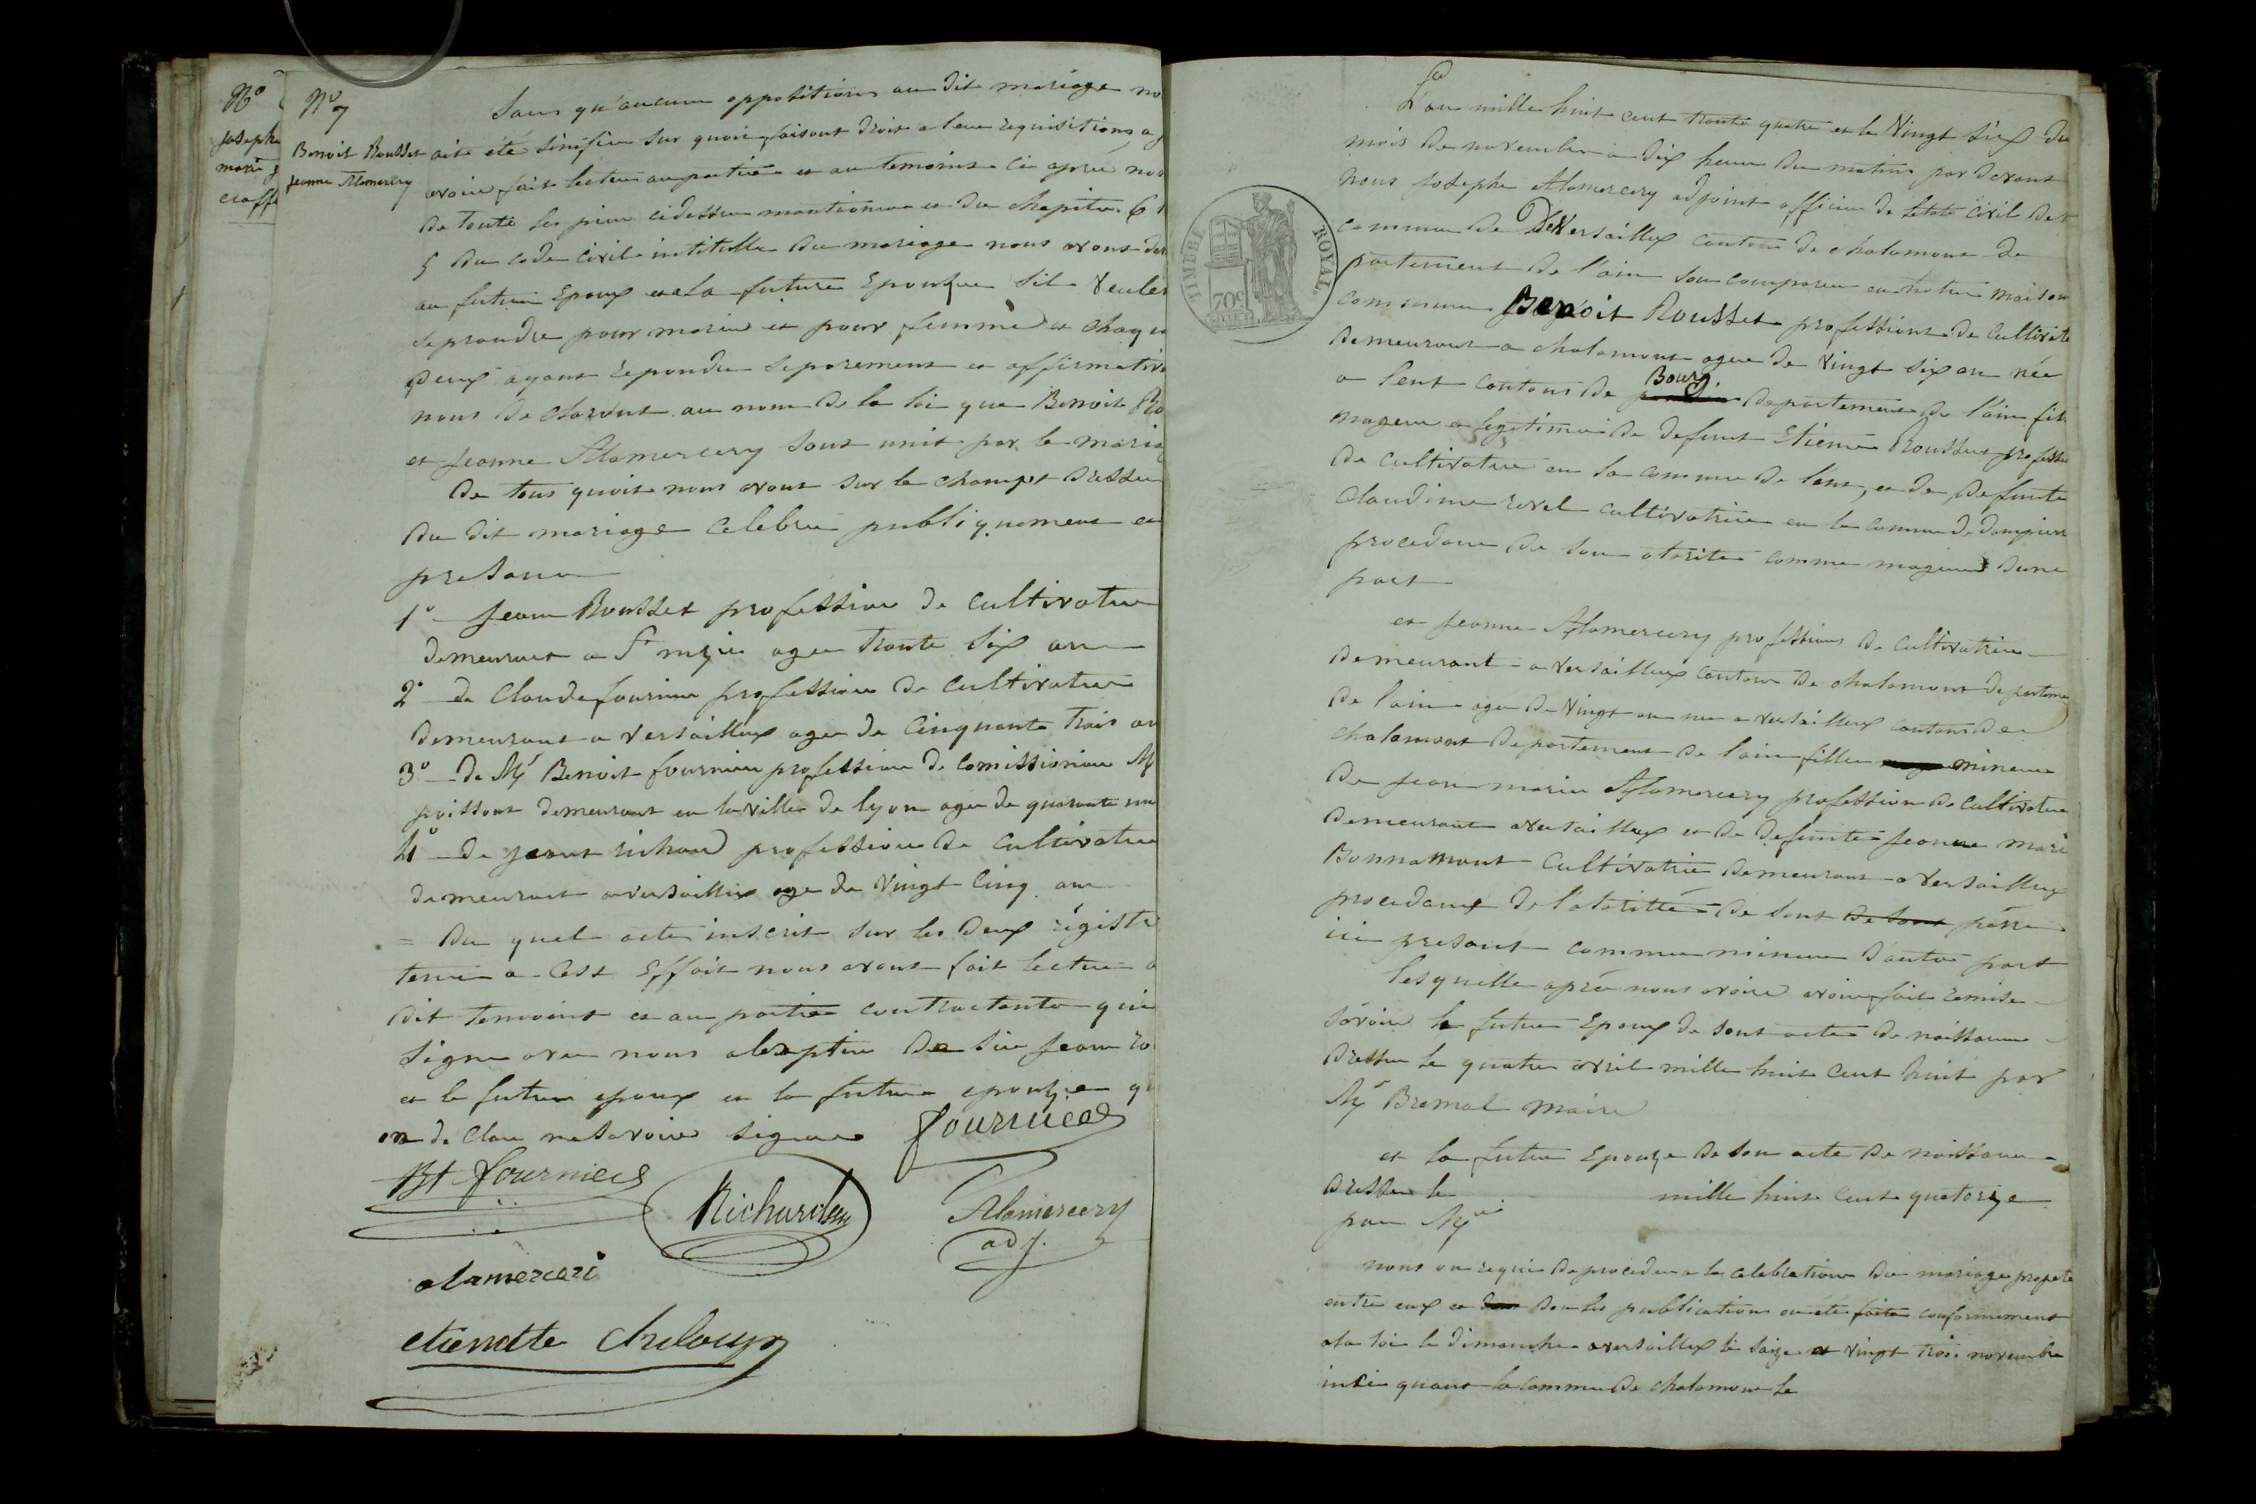 No
Josephe
marie
craffe
No 7
Benoit Rousset
Jeanne Alamercery
Sans qu'aucune oppositions au dit mariage no
ait été sinifiée sur quoi faisant droit a leur requisitions, a
avoire fait lecture au partié et au temoint ci apré no
de toute les piece cidessu mantionnee et du chapitre 6
5 du code civil intitulle du mariage nous avons de
au futur Epoux et a la future Epouse sil veules
se prandre pour marie et pour femme et chaque
deux ayant repondu separement et affirmative
nous declaront au nom de la loi que Benoit Ro
et jeanne Alamercery sont unit par le maria
De tous quoit nous avont sur le champt dressee
du dit mariage celebre publiquement en
presance
1° jean Rousset profession de cultivateur
demeurant a St nizie agee trante six an
2° de Claude fournier profession de cultivateur
demeurant a versailleux agee de cinquante trais an
3° de Mr Benoit fournier profession de comissionaire M
poissont demeurant en la ville de lyon agee de quarante un
4° de jeant richard profession de cultivateur
demeurant a versailleux age de vingt cinq an
= du quel acte inscrit sur les deux régistre
tenue a cest Effait nous avont fait lecture a
dit temoint et au partie contractante qui
signe avec nous alexption de sieu jean ro
et le future epoux et la future epouze q
on de clare ne savoire signer fournier
Bt fournier
Richard
Alamercery
adj.
alamerceri
etienette cheloup
L'an mille huit cent trante quatre et le Vingt six du
mois de novembre a dix heure du matin par devant
nous josephe Alamercery adjoint officier de letat civil de
commune de Versailleux canton de chalamont de
partement de l'ain son comparue en notre maison
commune Benoit Rousset profession de cultivate
TIMBRE ROYAL
70c
demeurant a chalamont agee de vingt six an née
a lent cantons de Bourg departement de l'ain fils
mageur et legitime de defunt Etienne Rousset profession
de cultivateur en la commune de lent, et de defunte
claudine revel cultivatrice en la commune de dompierre
procedant de son otorite comme mageur dune
part
et jeanne Alamercery profession de cultivatrice
demeurant a versailleux canton de chalamont departeme
de l'ain agee de vingt an nee a versailleux cantons de
chalamont departement de l'ain fille mineure
de jean marie Alamercery profession de cultivateur
demeurant a versailleux et de defunte jeanne mari
Bonnamout cultivatrice demeurant a versailleux
procedant de l'atoritté de sont de sont père
ici presant comme mineure d'autre part
lesquelle aprée nous avoire avoir fait remise
savoire le future Epoux de sont acte de naissance
dressee le quatre avril mille huit cent huit par
Mr Bremal maire
et la future Epouze de son acte de naissance
dressee le mille huit cent quatorze
par Mr
nous on requi de proceder a la celebration du mariage projete
entre eux et dont les publication on été faite conformement
ala loi le dimanche a versailleux le saize et vingt trois novembre
insi quant la commune de chalamont le